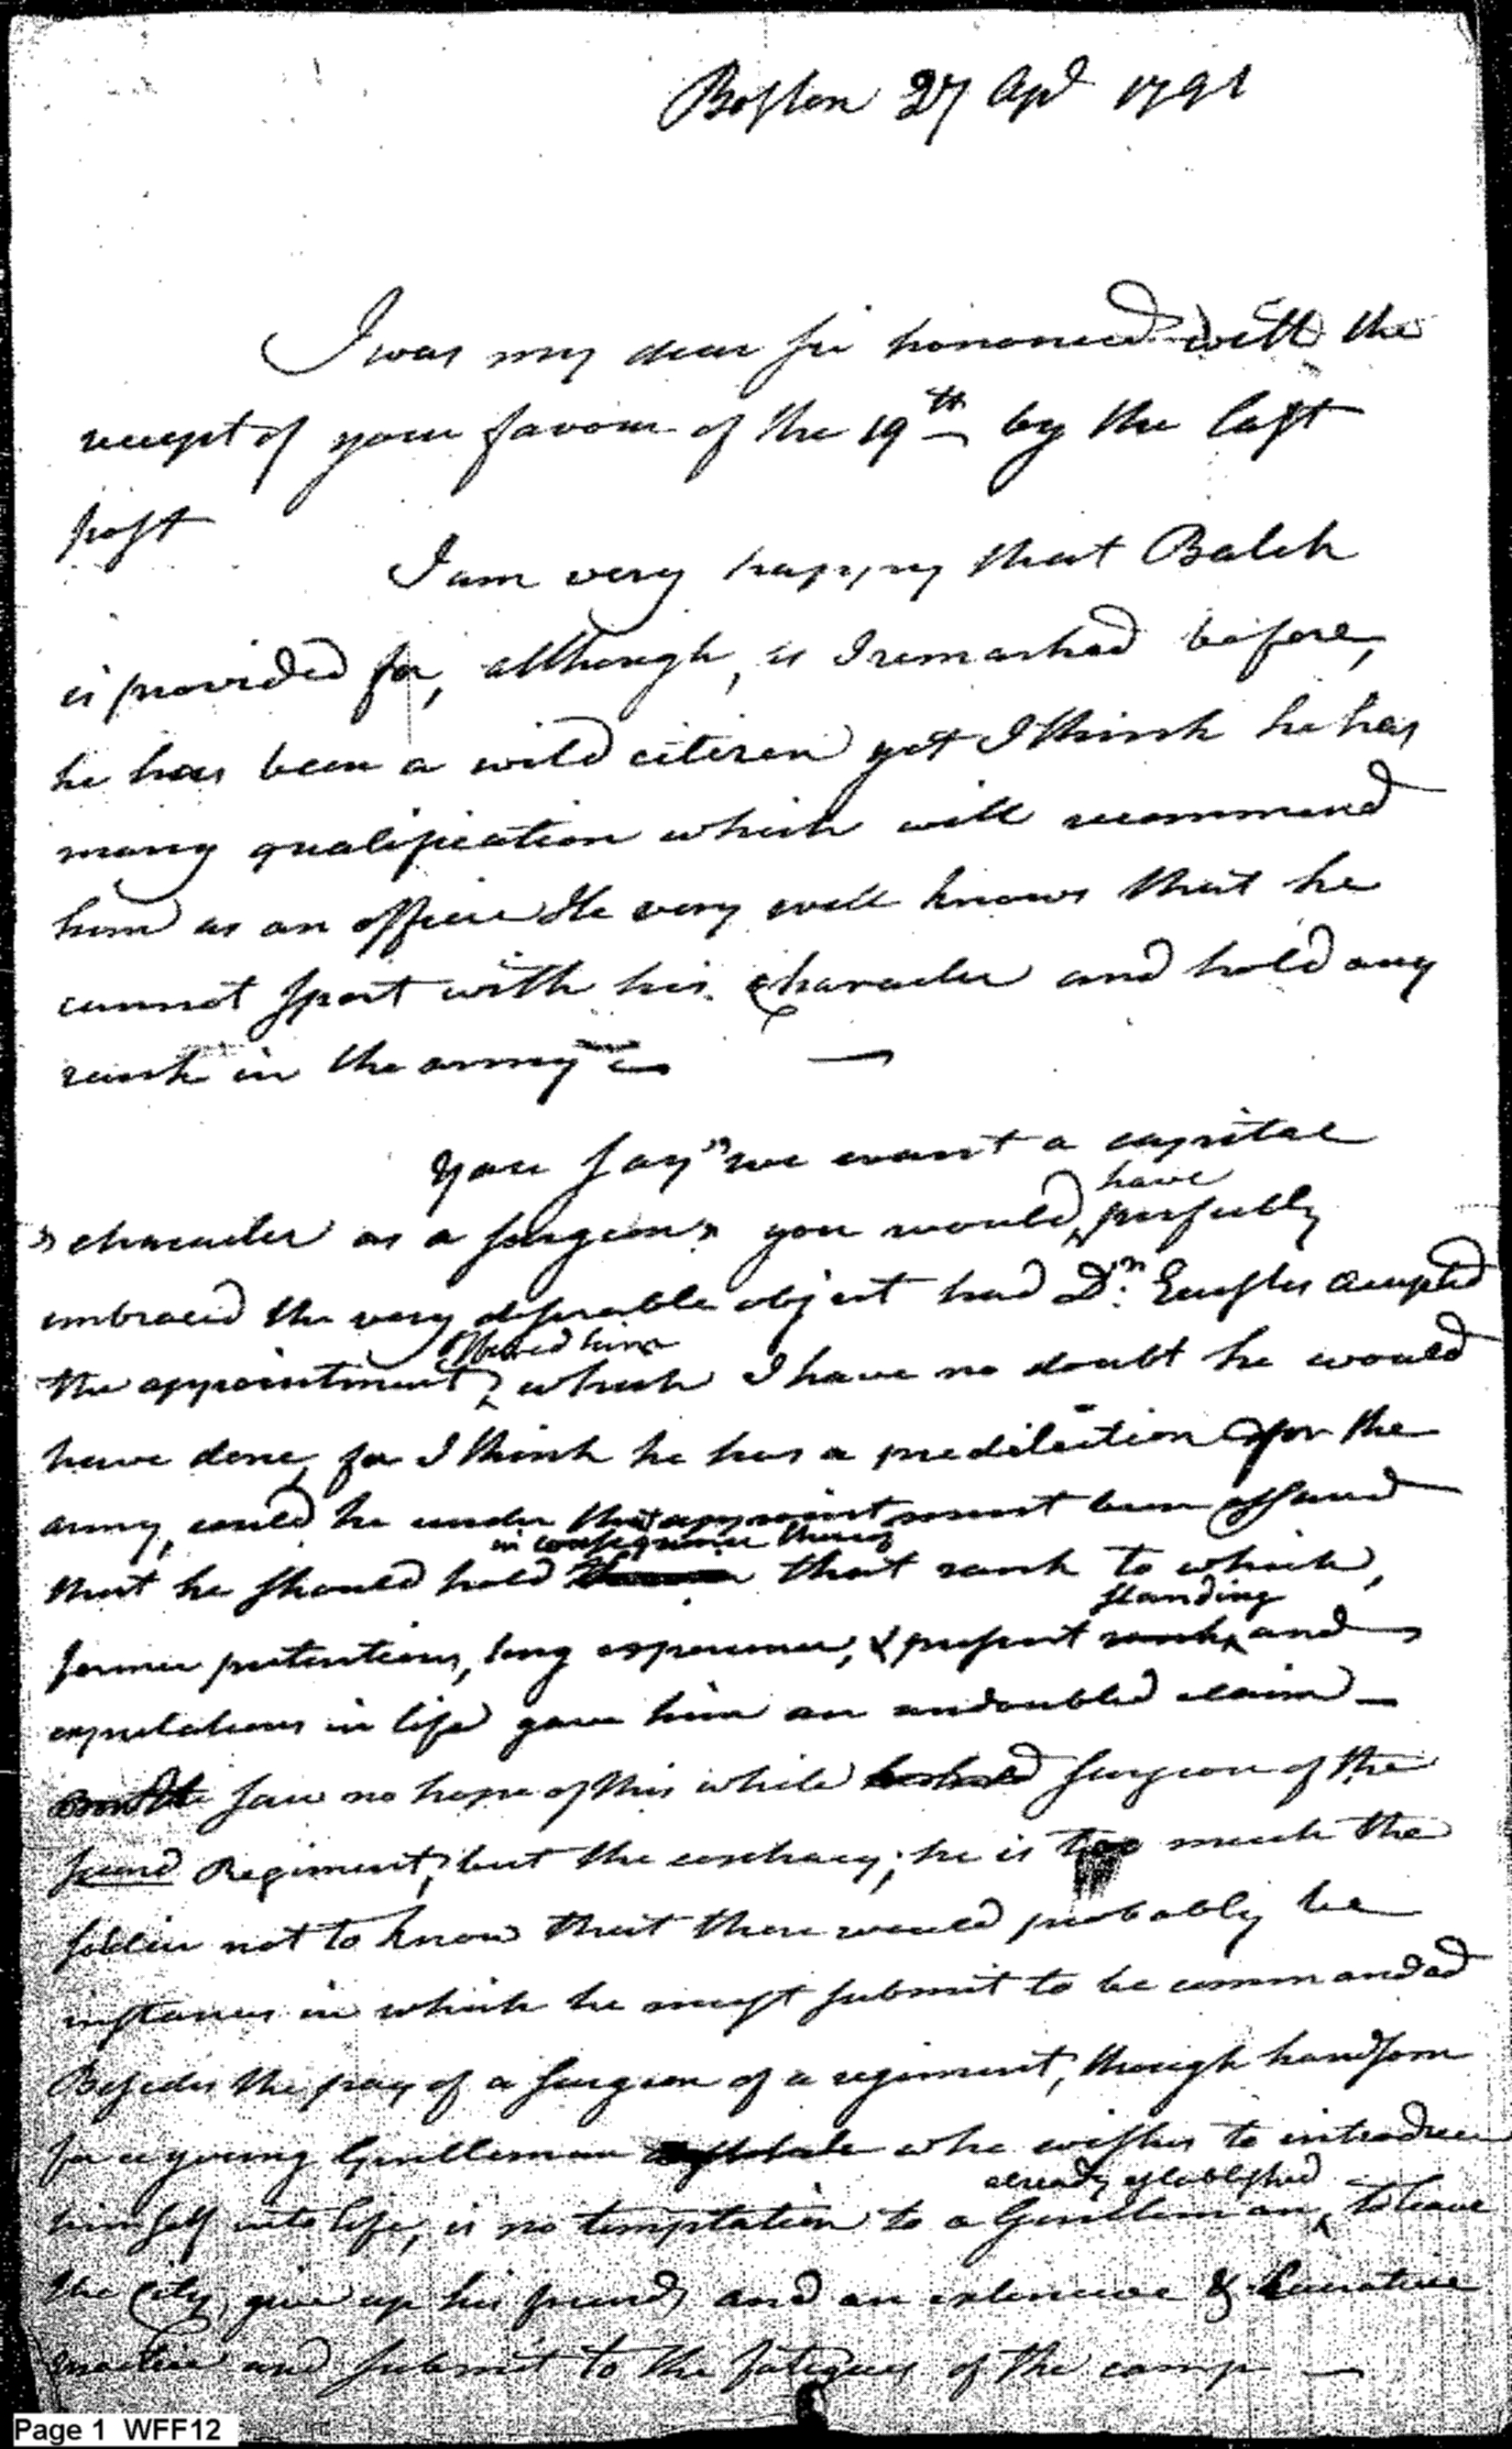 Boston 27 Apl 1791
I was my dear sir honoured with the
receipt of your favour of the 19th by the last
post
I am very happy that Balch
is provided for, although, as I remarked before,
he has been a wild citizen yet I think he has
many qualification which will recommend
him as an officer He very well knows that he
cannot sport with his character and hold any
rank in the army —
You say "we want a capital
"character as a surgeon" you would have perfectly
embraced the very desirable object had Dr. Eustis accepted
the appointment offered him, which I have no doubt he would
have done, for I think he has a predilection for the
army, could he under that appointment been assured
that he should hold in consequence thereof that rank to which,
former pretentions, long experience, & present standing and
expectations in life gave him an undoubted claim —
But he saw no hope of this while surgeon of the
second Regiment, but the contrary; he is too much the
soldier not to know that there would probably be
instances in which he must submit to be commanded
Besides the pay of a surgeon of a regiment, though handsom
for a young Gentleman who wishes to introduce
himself into life, is no temptation to a Gentleman already established, to leave
the City, give up his friends and an extensive & lucrative
practice and submit to the fatigues of the camp —
Page 1 WFF12